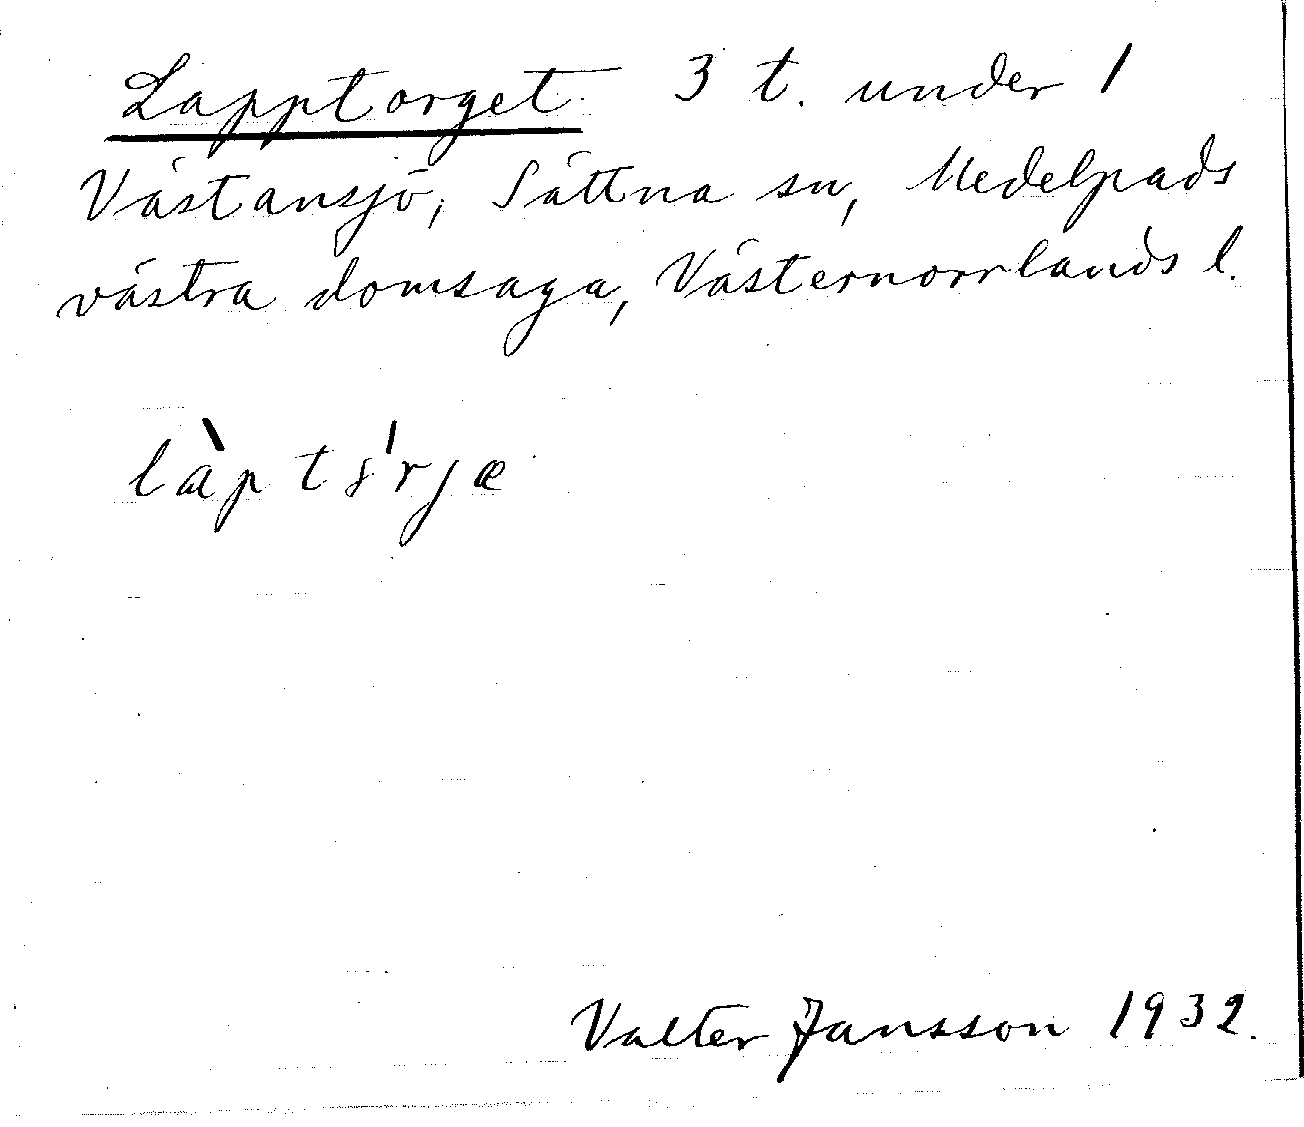 Lapptorget. 3 t. under 1
Västansjö, Sättna sn, Medelpads
västra domsaga, Västernorrlands l.
Valter Jansson 1932.